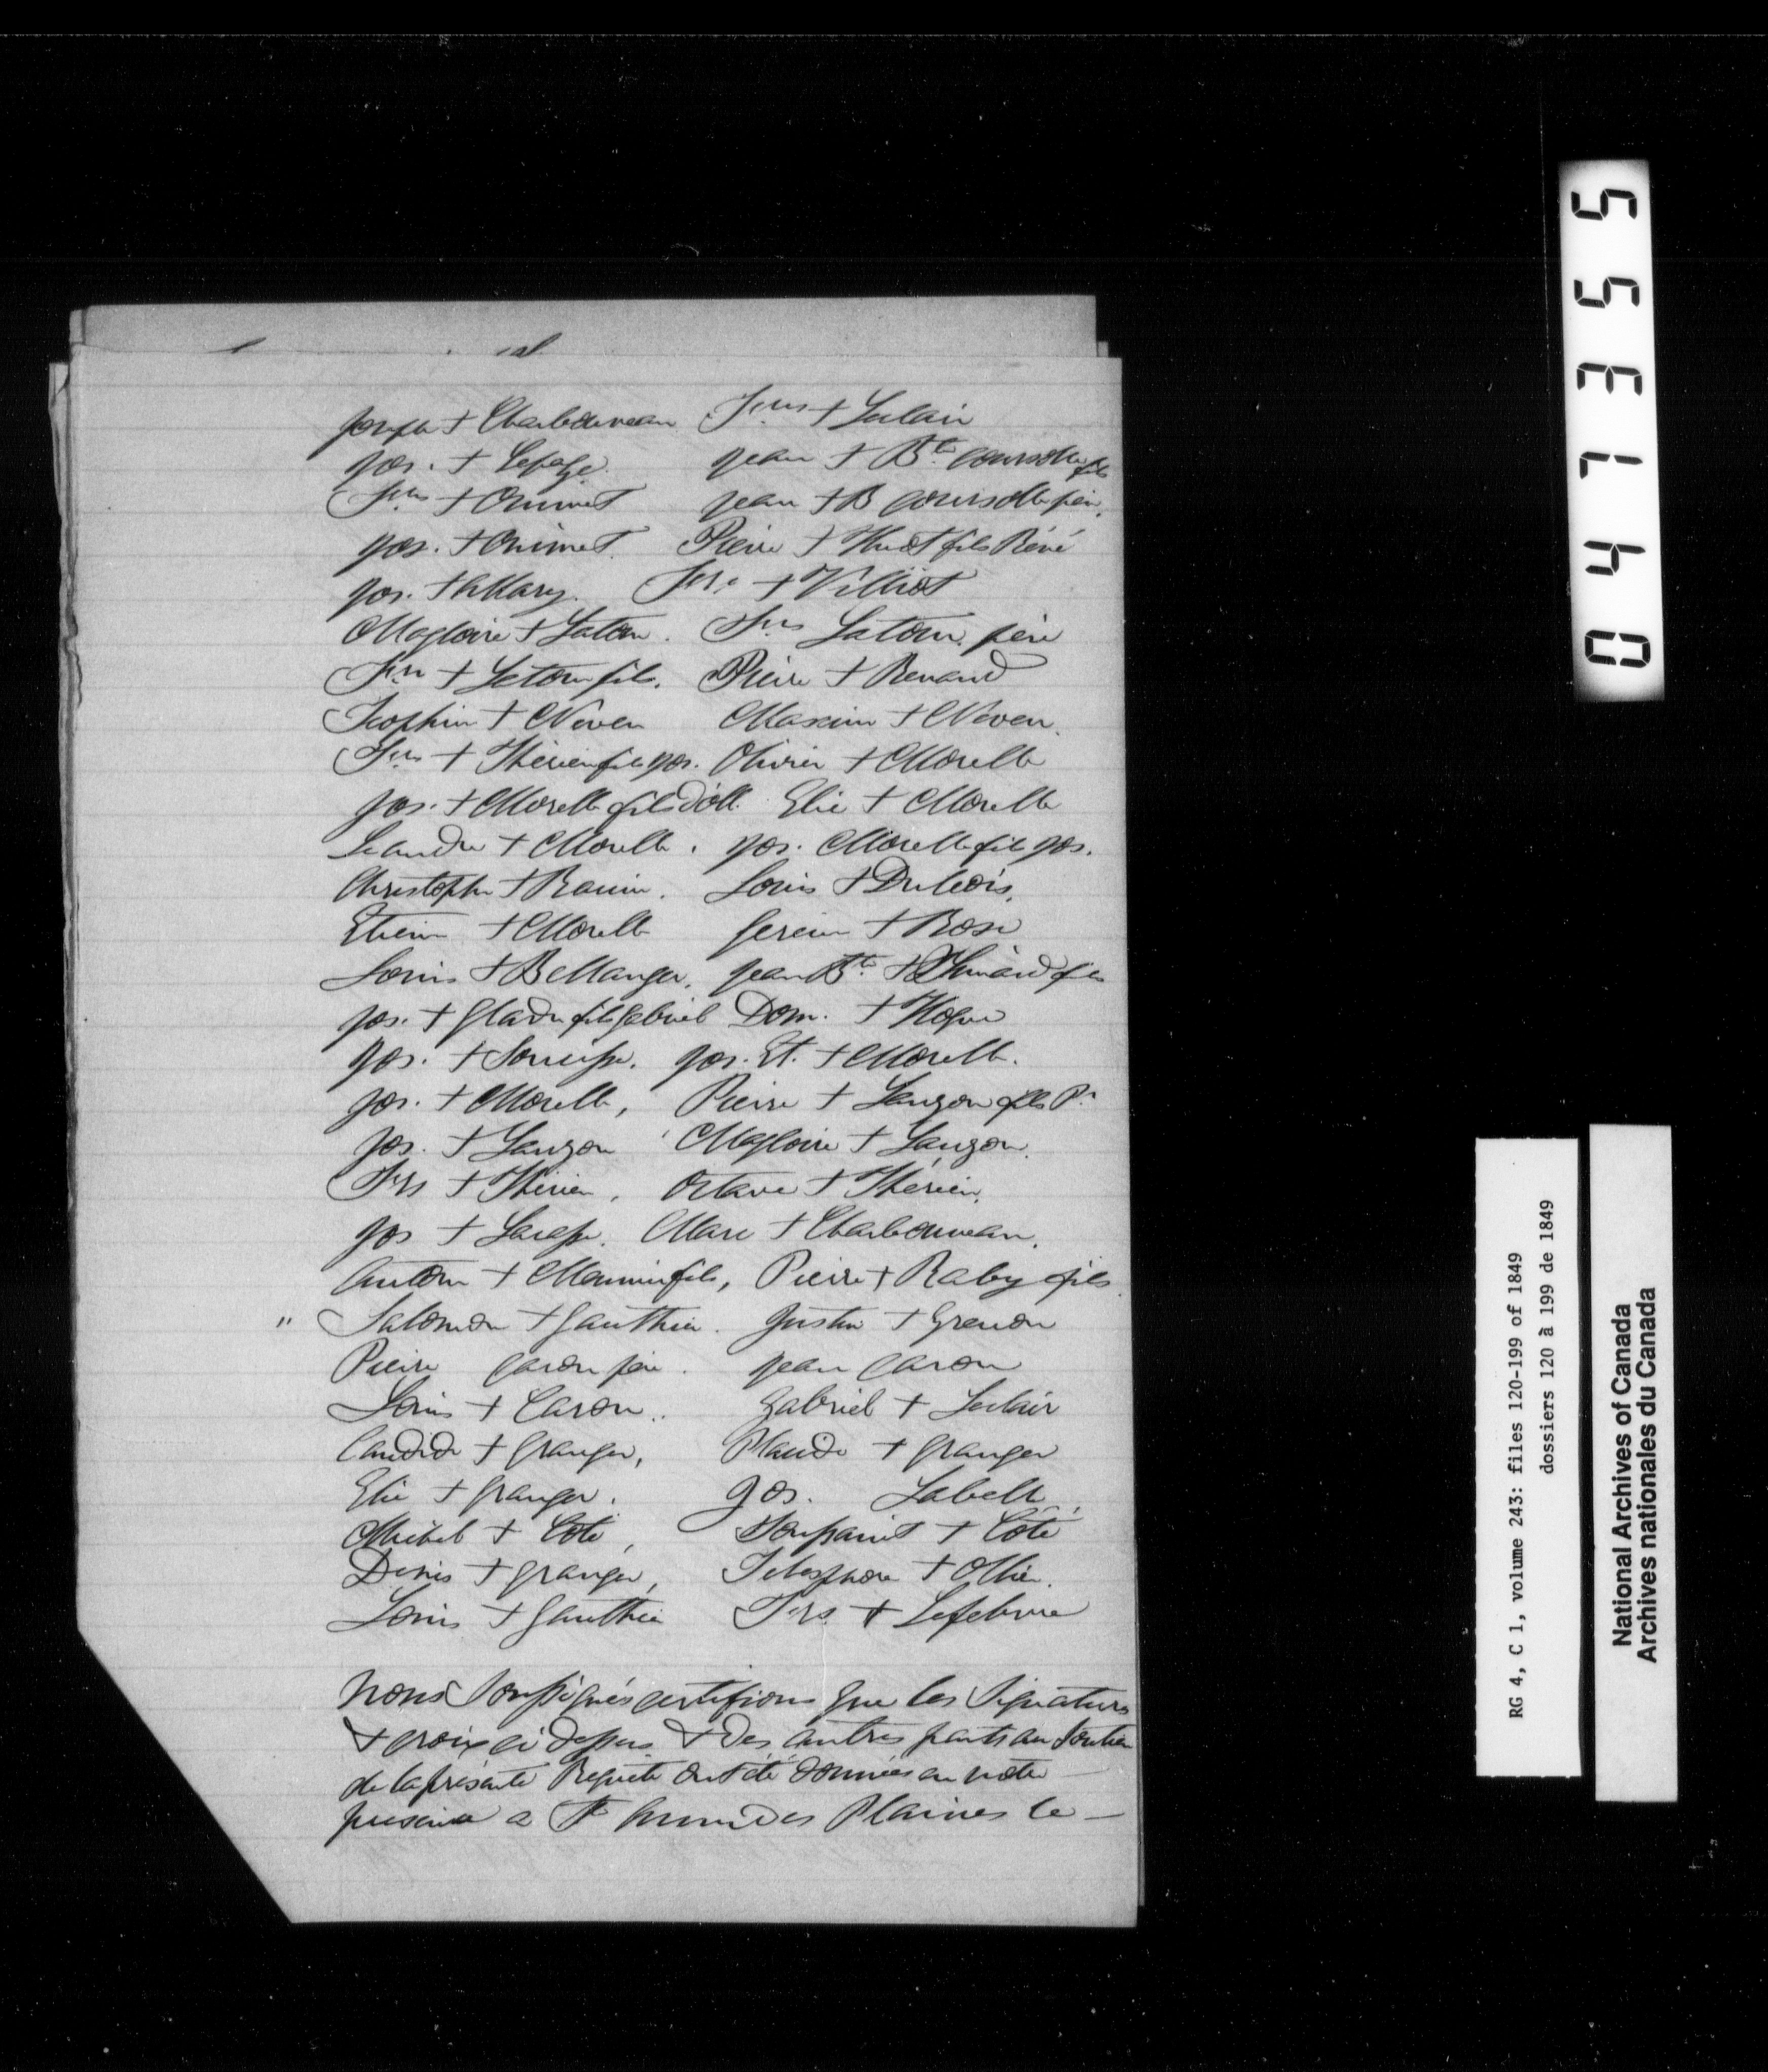 Joseph + Charbonneau Frs + Leclair
Jos. + Lepage. Jean + Bte Coursolle fils
Frs + Ouimet Jean + B Coursolle père.
Jos. + Ouimet. Pierre + Huot fils Réné
Jos. + Frs. +
Magloire + Latour. Frs Latour père
Frs + Latour fils. Pierre + Renaud
+ Neveu Maxime + Neveu.
Frs + Thérien fils Jos. Olivier + Morelle
Jos. + Morelle fils d'Oll. Elie + Morelle
Leandre + Morelle. Jos. Morelle fils Jos.
Christophe + Louis + Dubois.
Etienne + Morelle + Rose
Louis + Bellanger. Jean Bte + fils
Jos. + Gladu fils Gabriel Dom. + Hogue
Jos. + Jos. Et. + Morelle.
Jos. + Morelle, Pierre + Lauzon fils P.
Jos. + Lauzon Magloire + Lauzon.
Frs + Thérien, Octave + Thérien.
Jos + Marc + Charbonneau.
Antoine + fils, Pierre + Raby fils.
" Salomon + Gauthier. Justin + Grenon
Pierre Caron père. Jean Caron
Louis + Caron. Gabriel + Leclair
Candide + Granger, Plaude + Granger
Elie + Granger. Jos. Labelle.
Michel + Coté, Toussaint + Coté
Denis + Granger, Telesphore +
Louis + Gauthier Frs. + Lefebvre
Nous Soussignés certifions que les Signatures
& croix ci dessus & des autres parts au soutien
de la présente Requête ont été données en notre
presence a Ste Anne des Plaines le —
0 4 7 3 5 5
RG 4, C 1, volume 243: files 120-199 of 1849
dossiers 120 à 199 de 1849
National Archives of Canada
Archives nationales du Canada